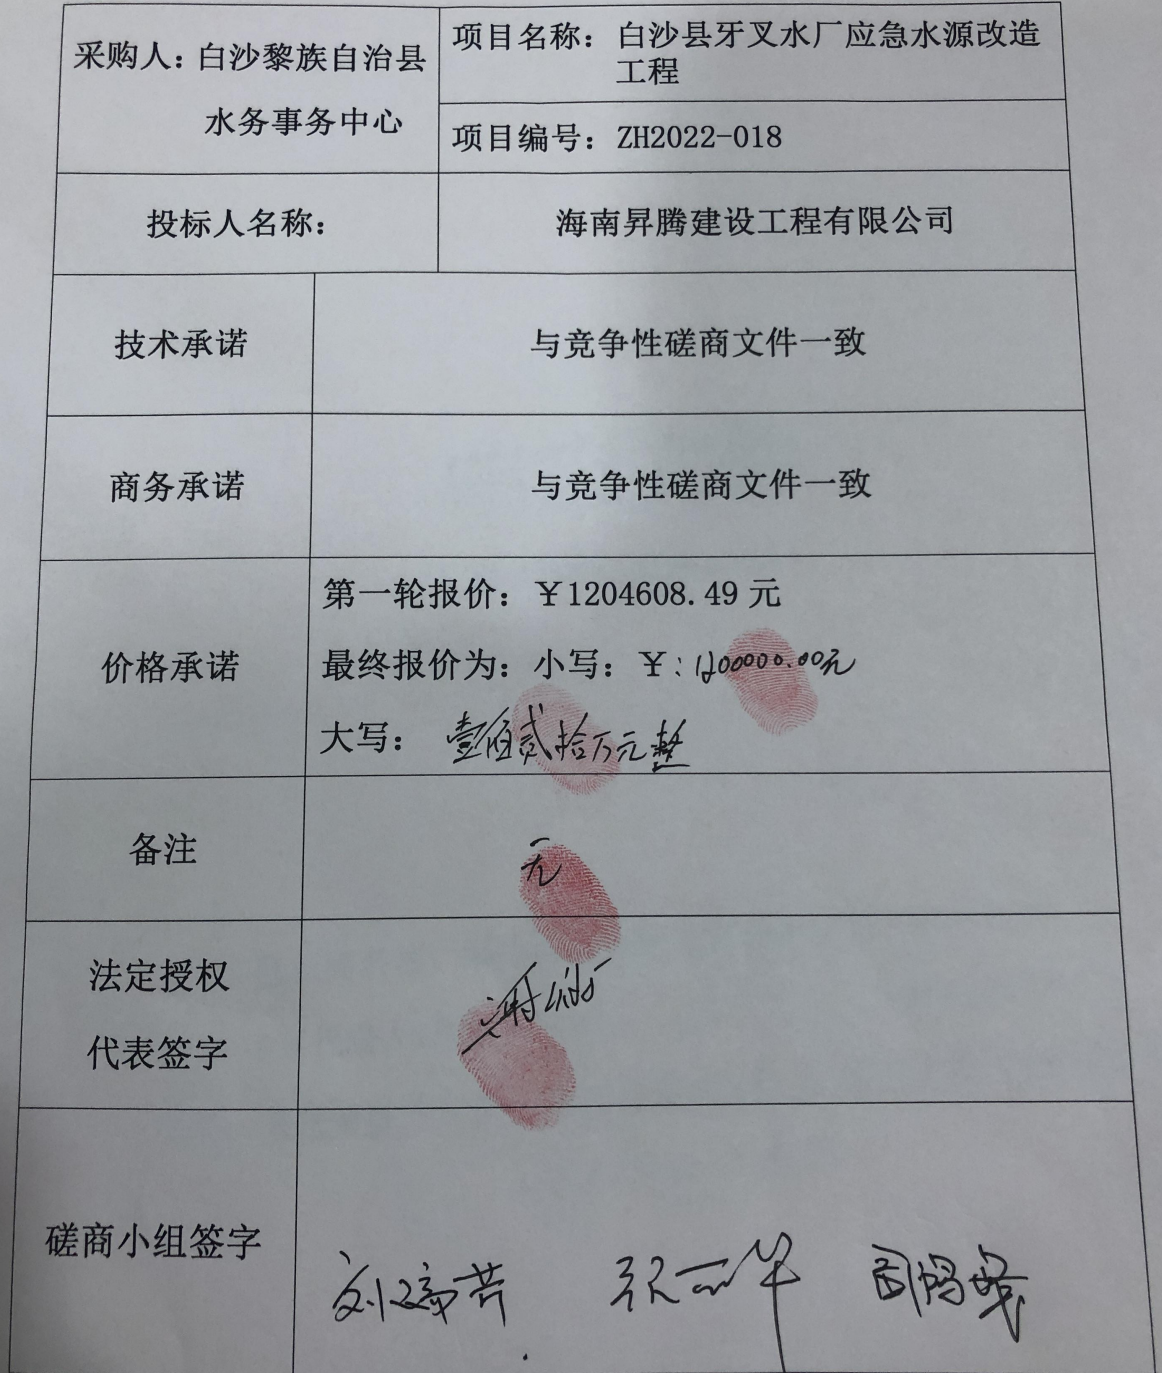 采购人：白沙黎族自治县
水务事务中心
项目名称：白沙县牙叉水厂应急水源改造
工程
项目编号：ZH2022-018
投标人名称：
海南昇腾建设工程有限公司
技术承诺
与竞争性磋商文件一致
商务承诺
与竞争性磋商文件一致
价格承诺
第一轮报价：￥1204608.49 元
最终报价为：小写：￥：1200000.00元
大写：壹佰贰拾万元整
备注
无
法定授权
代表签字
磋商小组签字